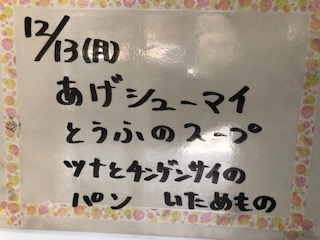 12/13(月)
あげシューマイ
とうふのスープ
ツナとチンゲンサイの
パン いためもの